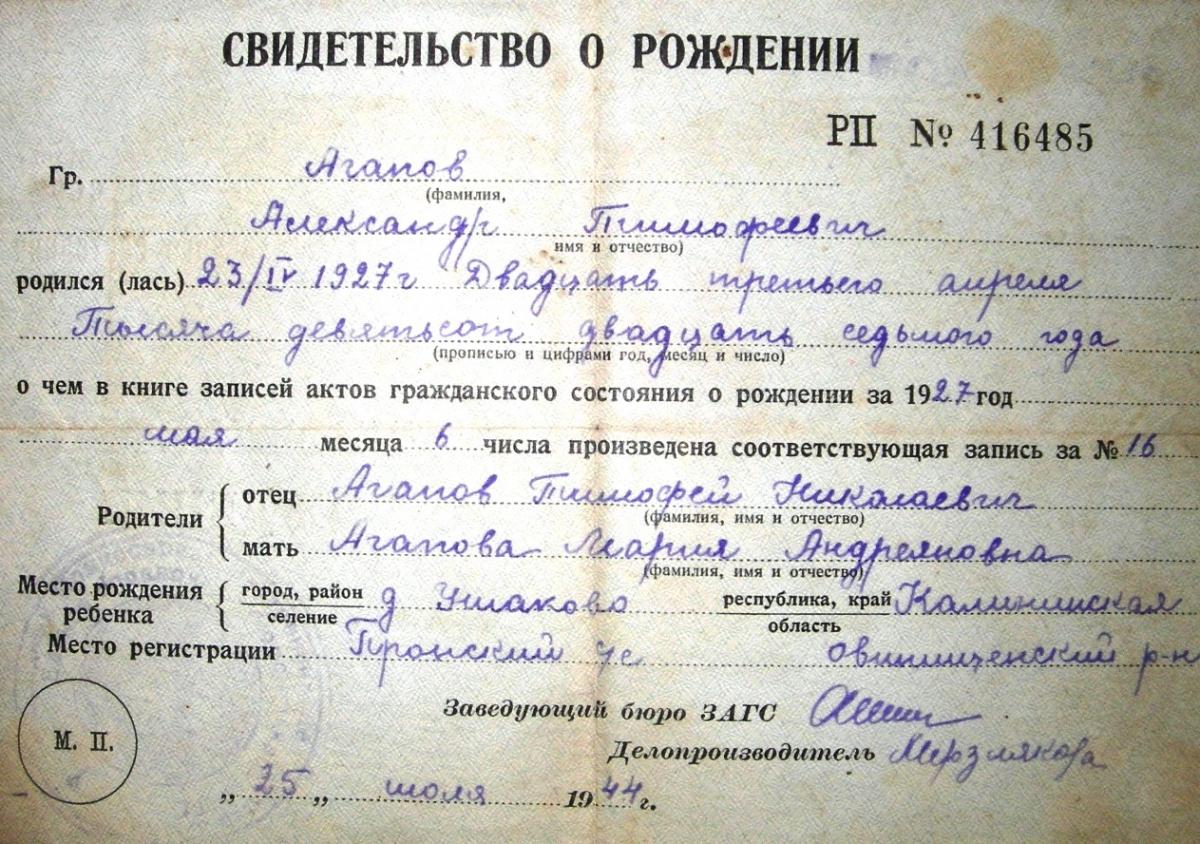 СВИДЕТЕЛЬСТВО О РОЖДЕНИИ
РП № 416485
Гр. Агапов
(фамилия,
Александр Тимофеевич
имя и отчество)
родился (лась) 23/IV 1927г Двадцать третьего апреля
Тысяча девятьсот двадцать седьмого года
(прописью и цифрами год, месяц и число)
о чем в книге записей актов гражданского состояния о рождении за 1927 год
мая месяца 6 числа произведена соответствующая запись за № 16
Родители
отец Агапов Тимофей Николаевич
(фамилия, имя и отчество)
мать Агапова Мария Андреяновна
(фамилия, имя и отчество)
Место рождения ребенка
город, район
селение
д Ушаково
республика, край
область
Калининская
Место регистрации Пронский с/с Овинищенский р-н
Заведующий бюро ЗАГС
Делопроизводитель Мерзлякова
М. П.
„ 25 „ июля 1944 г.